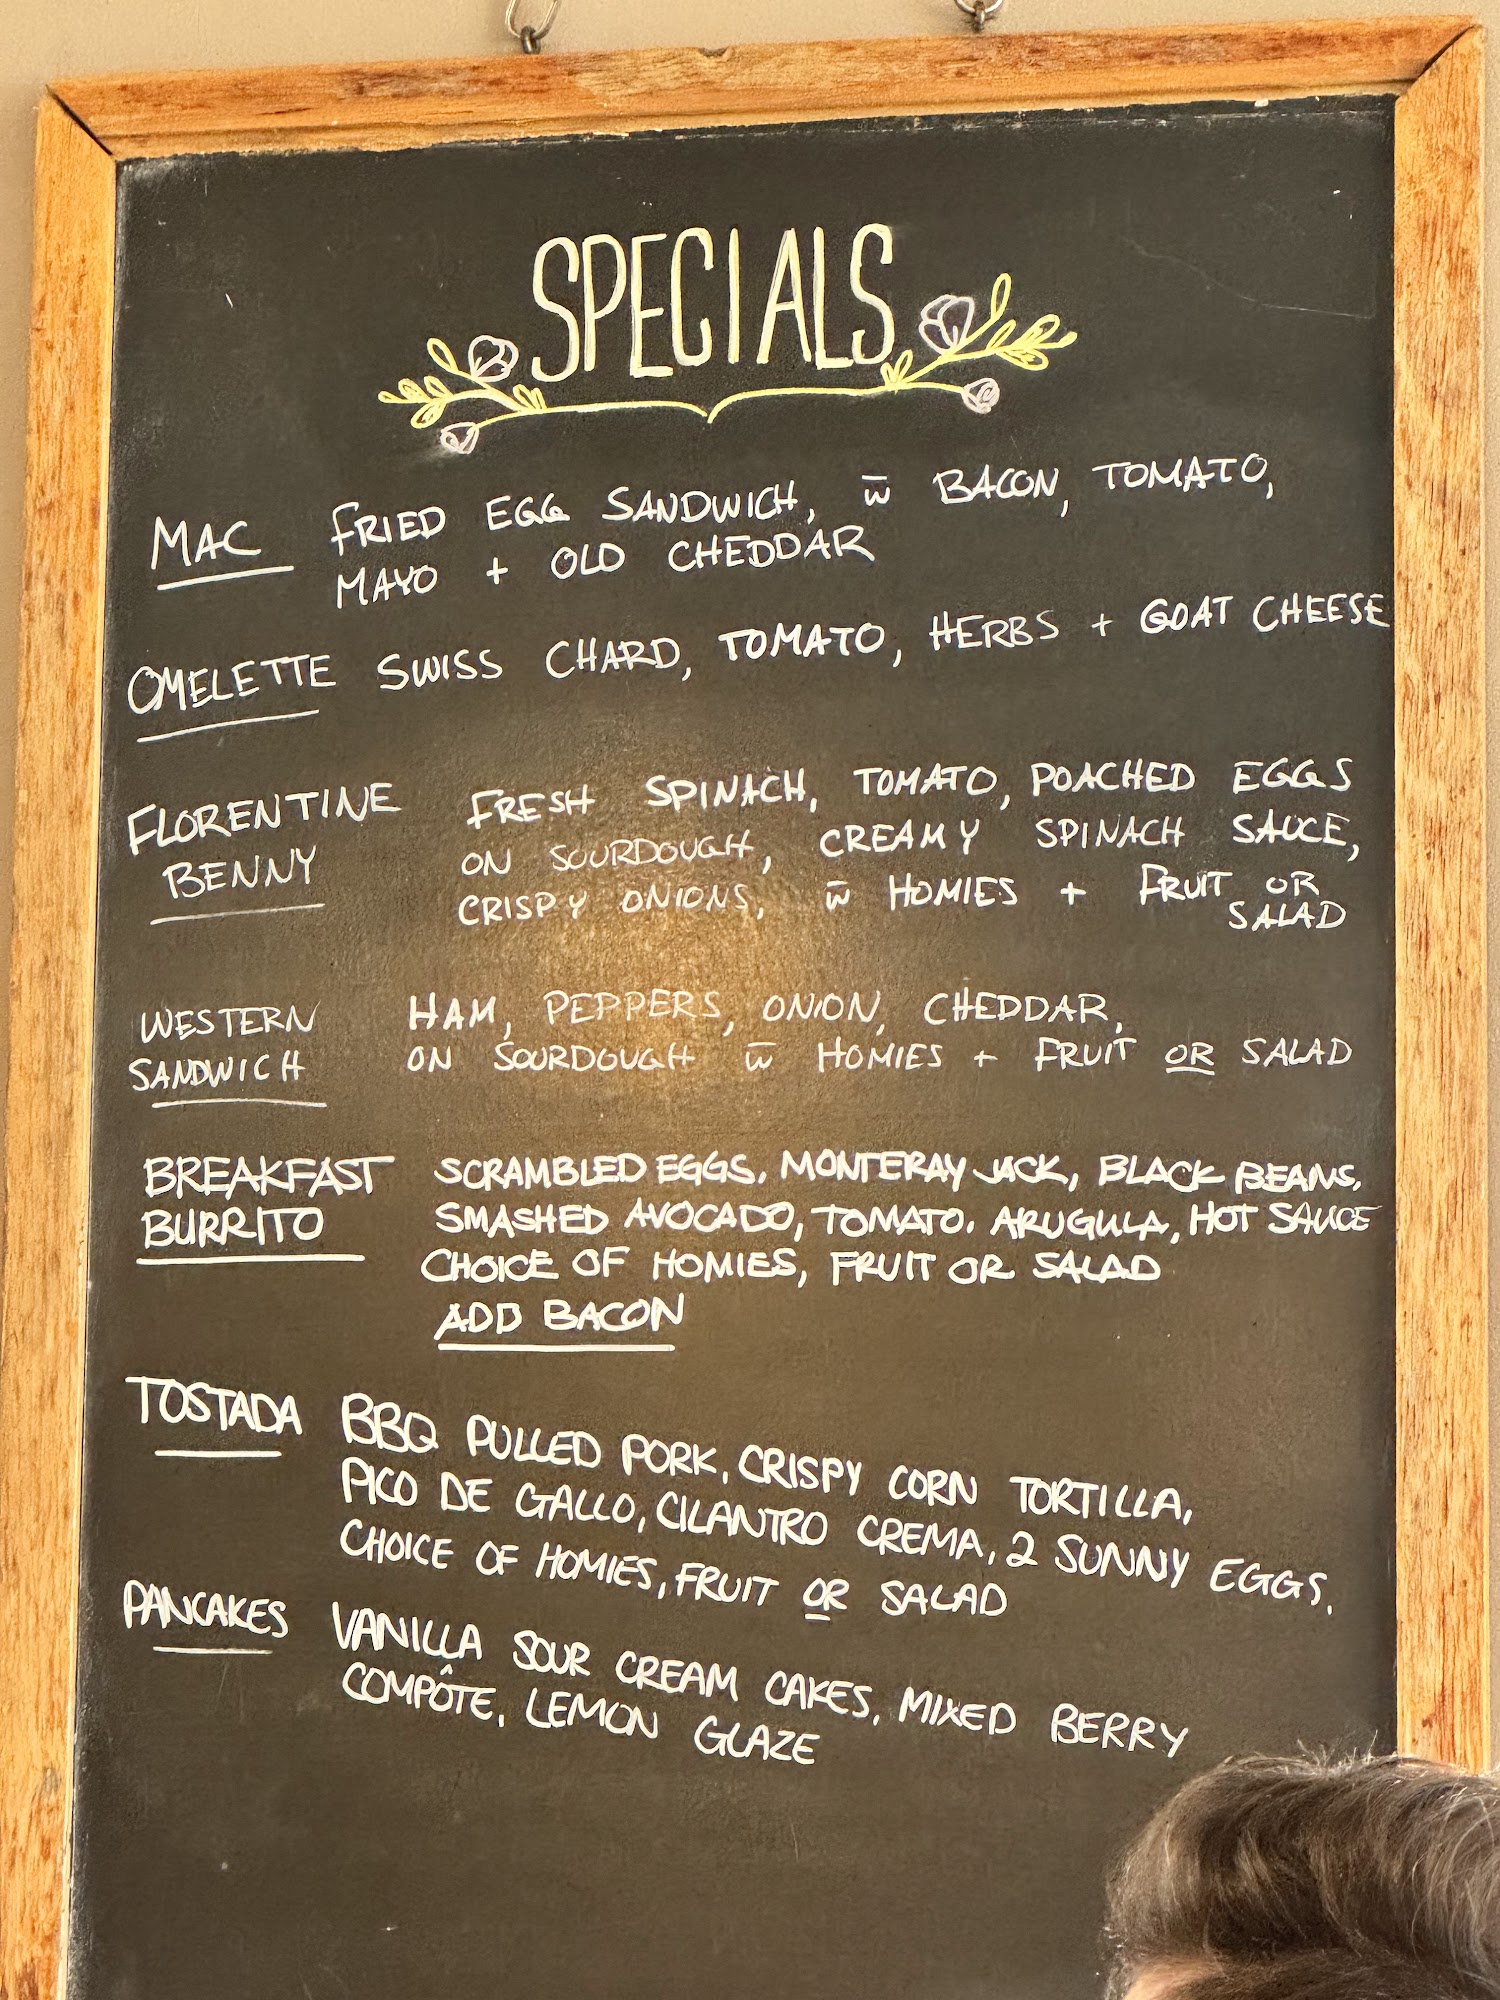 SPECIALS
MAC FRIED EGG SANDWICH, w̅ BACON, TOMATO,
MAYO + OLD CHEDDAR
OMELETTE SWISS CHARD, TOMATO, HERBS + GOAT CHEESE
FLORENTINE FRESH SPINACH, TOMATO, POACHED EGGS
BENNY ON SOURDOUGH, CREAMY SPINACH SAUCE,
CRISPY ONIONS, w̅ HOMIES + FRUIT OR
SALAD
WESTERN HAM, PEPPERS, ONION, CHEDDAR,
SANDWICH ON SOURDOUGH w̅ HOMIES + FRUIT OR SALAD
BREAKFAST SCRAMBLED EGGS, MONTERAY JACK, BLACK BEANS,
BURRITO SMASHED AVOCADO, TOMATO. ARUGULA, HOT SAUCE
CHOICE OF HOMIES, FRUIT OR SALAD
ADD BACON
TOSTADA BBQ PULLED PORK, CRISPY CORN TORTILLA,
PICO DE GALLO, CILANTRO CREMA, 2 SUNNY EGGS,
CHOICE OF HOMIES, FRUIT OR SALAD
PANCAKES VANILLA SOUR CREAM CAKES, MIXED BERRY
COMPÔTE, LEMON GLAZE